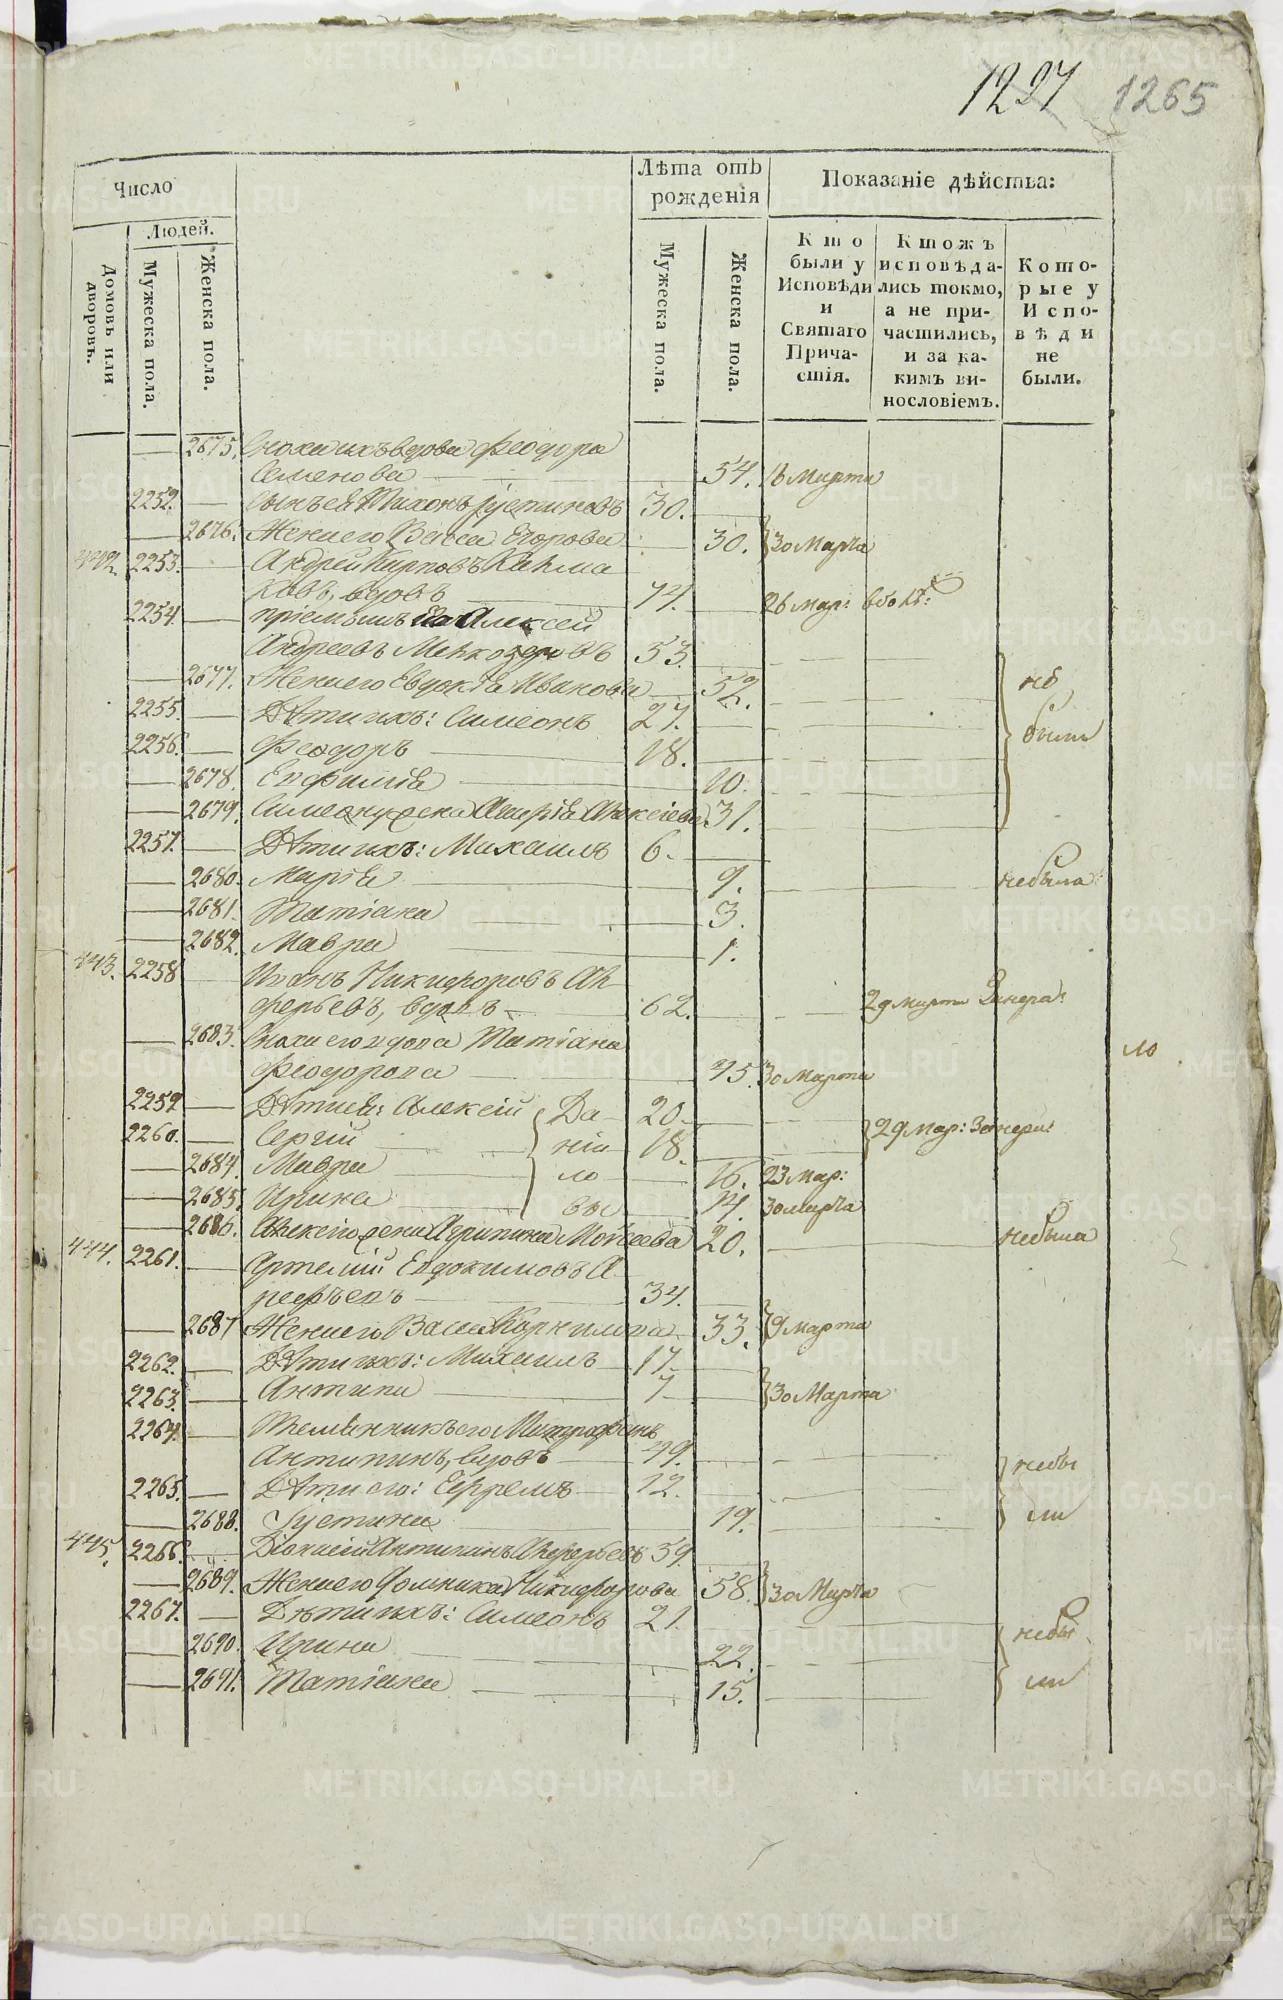 1227 1265
Число
Лѣта отъ рожденія
Показаніе дѣйства:
Людей.
Домовъ или дворовъ.
Мужеска пола.
Женска пола.
Мужеска пола.
Женска пола.
Кто были у Исповѣди и Святаго Причастія.
Ктожъ исповѣдались токмо, а не причастились, и за какимъ винословіемъ.
Которые у Исповѣди не были.
2675. Сноха ихъ вдова Феодора
Семенова 54. 18 Марта
2252. Сынъ ея Тихонъ Густиновъ 30.
2676. Жена его Васса Егорова 30. 30 Марта
442. 2253. Андрей Карповъ
вдовъ 74. 26 Мар:
2254. пріемышъ его Алексей
Андреевъ 53.
2677. Жена его Евдокія Иванова 52. не
2255. Дѣти ихъ: Симеонъ 27. были
2256. Феодоръ 18.
2678. Евфимія 10.
2679. Симеону жена 31.
2257. Дѣти ихъ: Михаилъ 6.
2680. Марія 9. не была
2681. Татіана 3.
2682. Мавра 1.
443. 2258 Иванъ Никифоровъ Ал-
ферьевъ, вдовъ 62. 29 Марта
2683. Сноха его вдова Татіана
Феодорова 45. 30 Марта
ло
2259 Дѣти ея: Алексій Да- 20.
2260. Сергій ніи- 18. 29 Мар:
2684. Мавра ло- 16. 23 Мар:
2685. Ирина вы 14. 30 марта
2686. Алексію жена Агрипина Моѵсеева 20. не была
444. 2261. Артемій Евдокимовъ А-
рефьевъ 34.
2687 Жена его Васса Корнилова 33. 9 марта
2262. Дѣти ихъ: Михаилъ 17.
2263. Антипа 7 30 Марта
2264. Племянникъ его Митрофанъ
Антипинъ, вдовъ 49. не бы
2265. Дѣти его: Ефремъ 12.
2688. Густина 19. ли
445. 2266. Діонисій Антипинъ Алферьевъ 59.
2689. Жена его Домника Никифорова 58. 30 Марта
2267. Дѣти ихъ: Симеонъ 21.
2690. Ирина 22. не бы
2691. Татіана 15. ли
METRIKI.GASO-URAL.RU